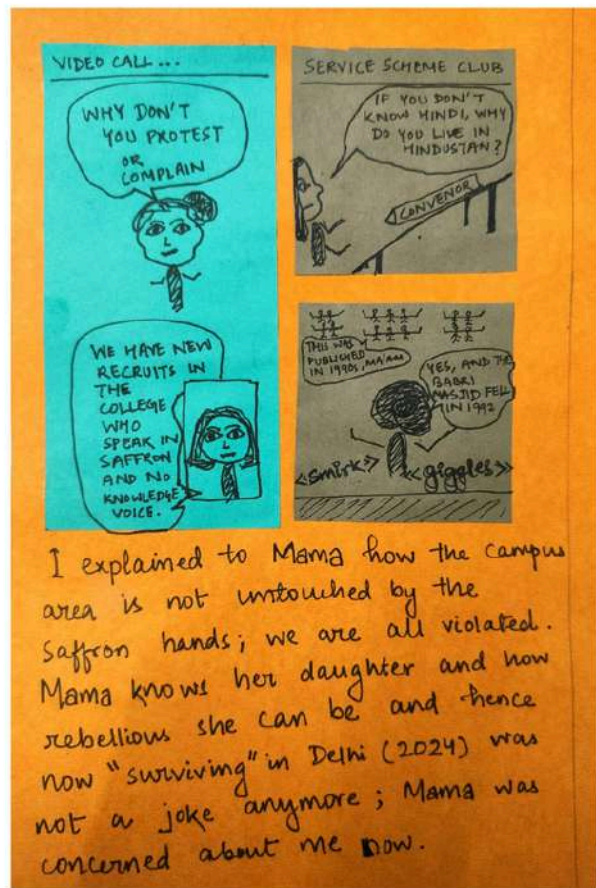 VIDEO CALL...
WHY DON'T
YOU PROTEST
OR
COMPLAIN
WE HAVE NEW
RECRUITS IN
THE
COLLEGE
WHO
SPEAK IN
SAFFRON
AND NO
KNOWLEDGE
VOICE.
SERVICE SCHEME CLUB
IF YOU DON'T
KNOW HINDI, WHY
DO YOU LIVE IN
HINDUSTAN?
CONVENOR
THIS WAS
PUBLISHED
IN 1990s, MA'AM
YES, AND THE
BABRI
MASJID FELL
IN 1992
<smirk>
<<giggles>>
I explained to Mama how the campus
area is not untouched by the
Saffron hands; we are all violated.
Mama knows her daughter and how
rebellious she can be and hence
now "surviving" in Delhi (2024) was
not a joke anymore; Mama was
concerned about me now.